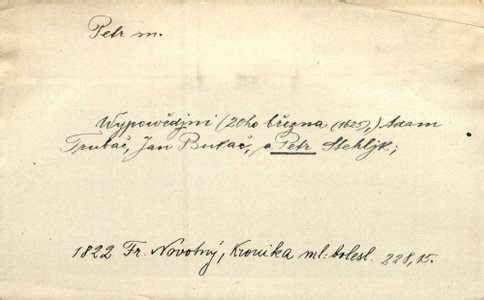 Petr m.
Wypowědjni (20ho března (1625),) Adam
Trubač, Jan Bukač, a Petr Stehljk;
1822 Fr. Novotný, Kronika ml: bolesl. 228,15.